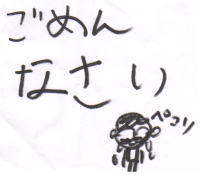 ごめん
なさい
ペコリ